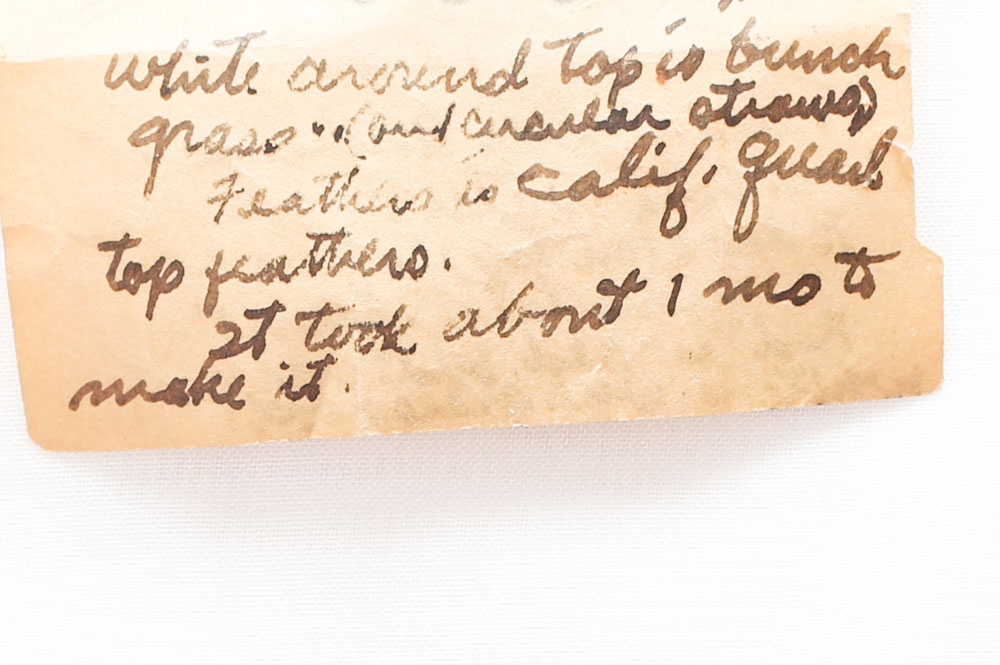 white around top is bunch
grass. (and circular straws)
Feathers is Calif. Quail
top feathers.
It took about 1 mo to
make it.